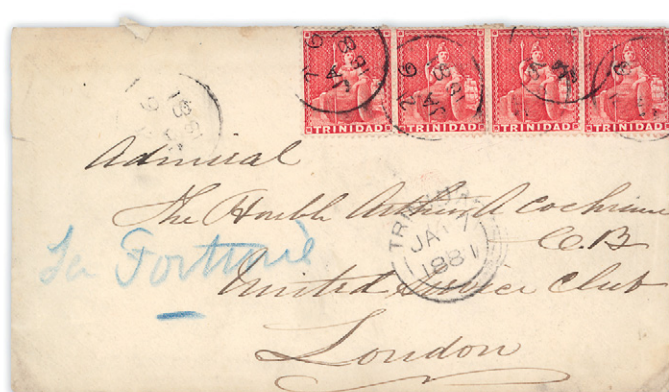 TRINIDAD TRINIDAD TRINIDAD TRINIDAD
1881
Admiral
The Honble Arthur A Cochrane
C.B
JA
1881
United Service Club
London